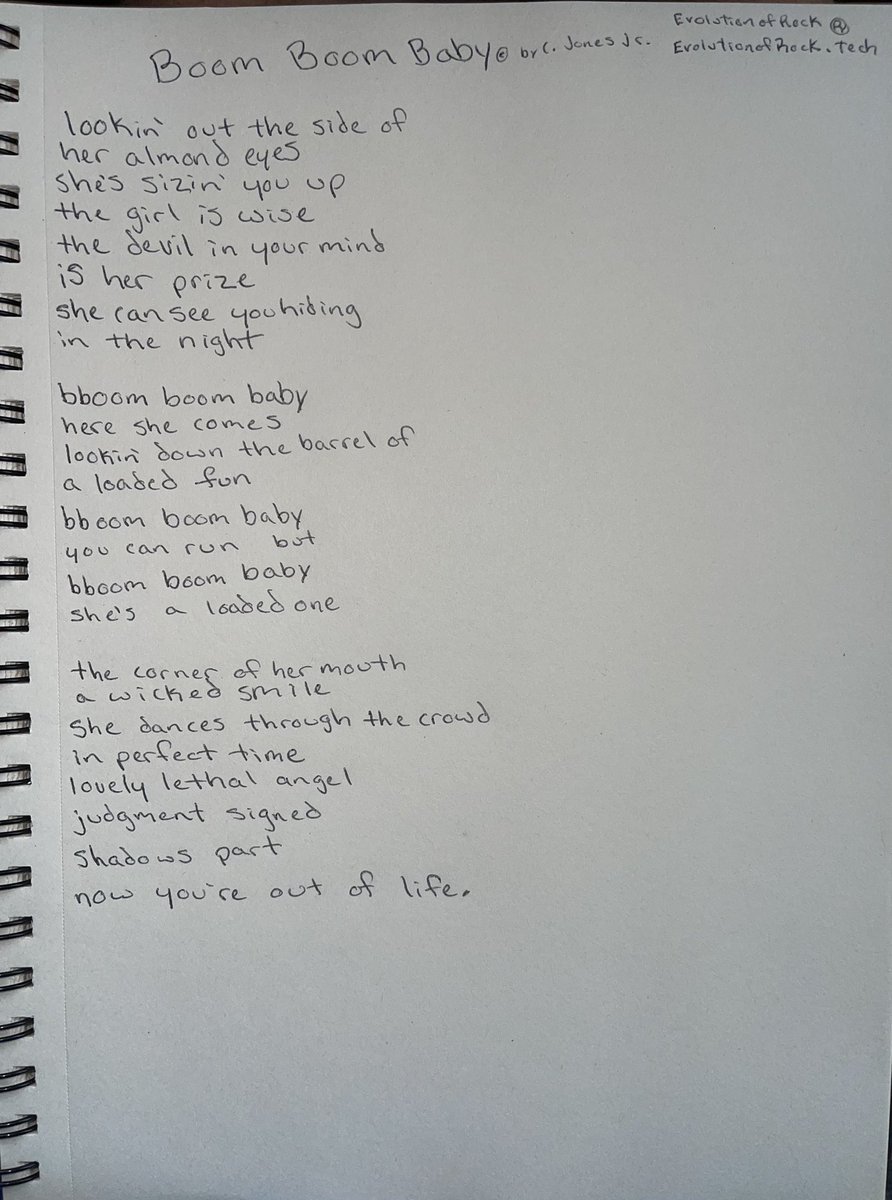 Evolution of Rock ®
EvolutionofRock.tech
Boom Boom Baby © by C. Jones Jr.
lookin' out the side of
her almond eyes
she's sizin' you up
the girl is wise
the devil in your mind
is her prize
she can see you hiding
in the night
bboom boom baby
here she comes
lookin' down the barrel of
a loaded fun
bboom boom baby
you can run but
bboom boom baby
she's a loaded one
the corner of her mouth
a wicked smile
she dances through the crowd
in perfect time
lovely lethal angel
judgment signed
shadows part
now you're out of life.